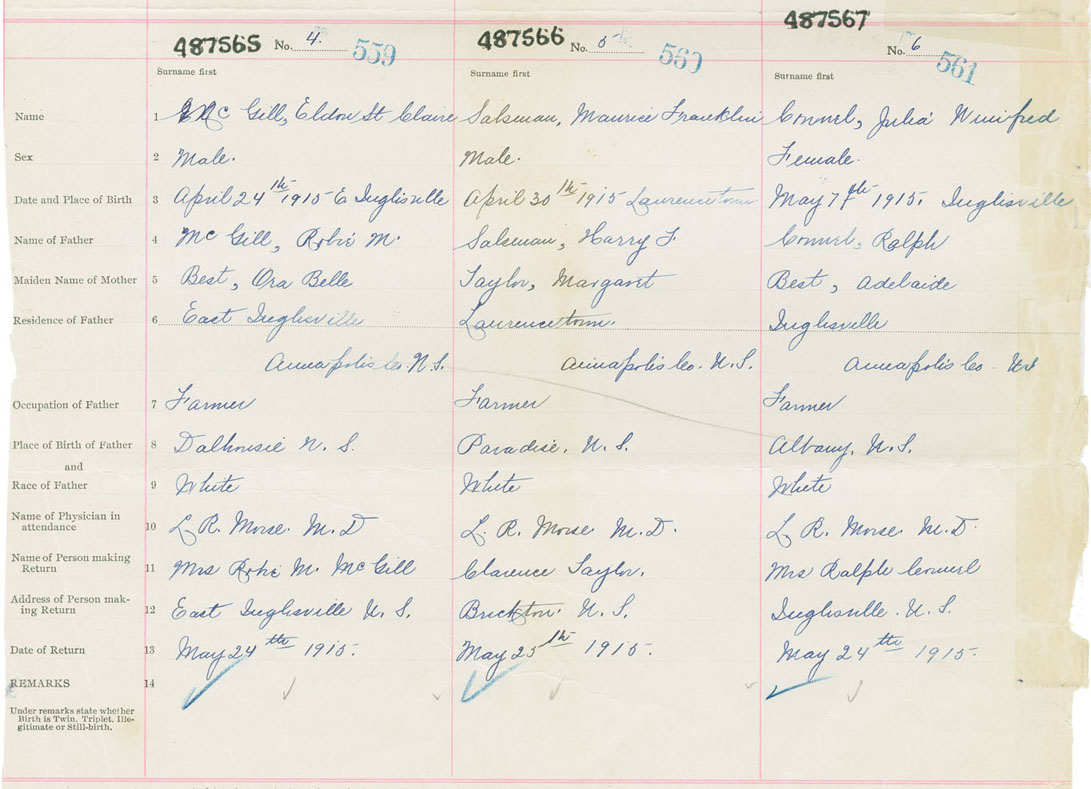 487565 No. 4. 559 487566 No. 5 560 487567 No. 6 561
Surname first Surname first Surname first
Name 1 Mc Gill, Eldon St Claire Salsman, Maurice Franklin Connel, Julia Winifred
Sex 2 Male. Male. Female.
Date and Place of Birth 3 April 24th 1915 E Inglisville April 30th 1915 Laurencetown May 7th 1915. Inglisville
Name of Father 4 Mc Gill, Robie M. Salsman, Harry F Connel, Ralph
Maiden Name of Mother 5 Best, Ora Belle Taylor, Margaret Best, Adelaide
Residence of Father 6 East Inglisville Laurencetown. Inglisville
Annapolis Co. N.S. Annapolis Co. N.S. Annapolis Co. NS
Occupation of Father 7 Farmer Farmer Farmer
Place of Birth of Father 8 Dalhousie N.S. Paradise. N.S. Albany, N.S.
and
Race of Father 9 White White White
Name of Physician in
attendance 10 L. R. Morse. M.D L. R. Morse M.D. L. R. Morse M.D.
Name of Person making
Return 11 Mrs Robie M. McGill Clarence Taylor. Mrs Ralph Connel
Address of Person mak-
ing Return 12 East Inglisville N.S. Brickton N.S. Inglisville. N.S.
Date of Return 13 May 24th 1915. May 25th 1915. May 24th 1915.
REMARKS 14
Under remarks state whether
Birth is Twin, Triplet, Ille-
gitimate or Still-birth.